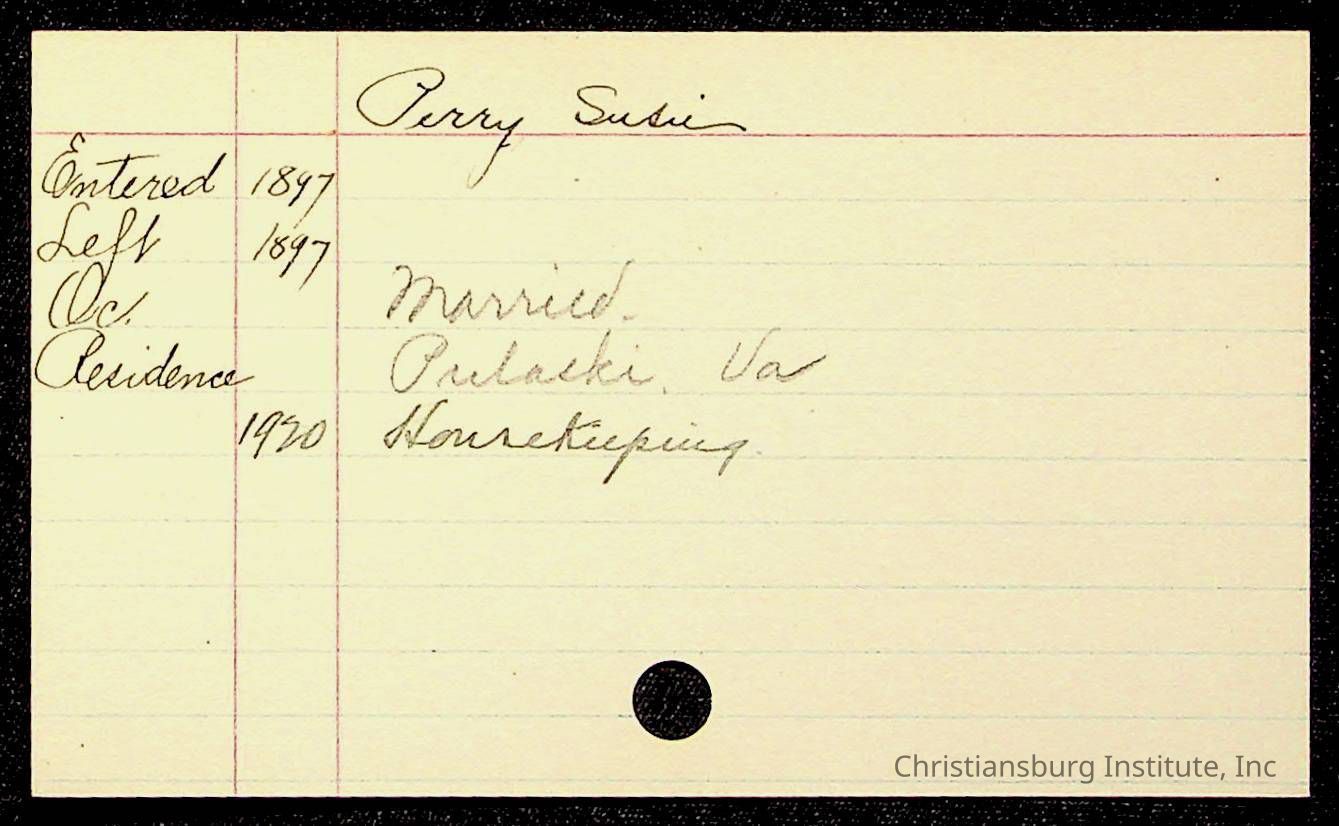 Perry Susie
Entered 1897
Left 1897
Oc. Married.
Residence Pulaski, Va
1920 Housekeeping.
Christiansburg Institute, Inc